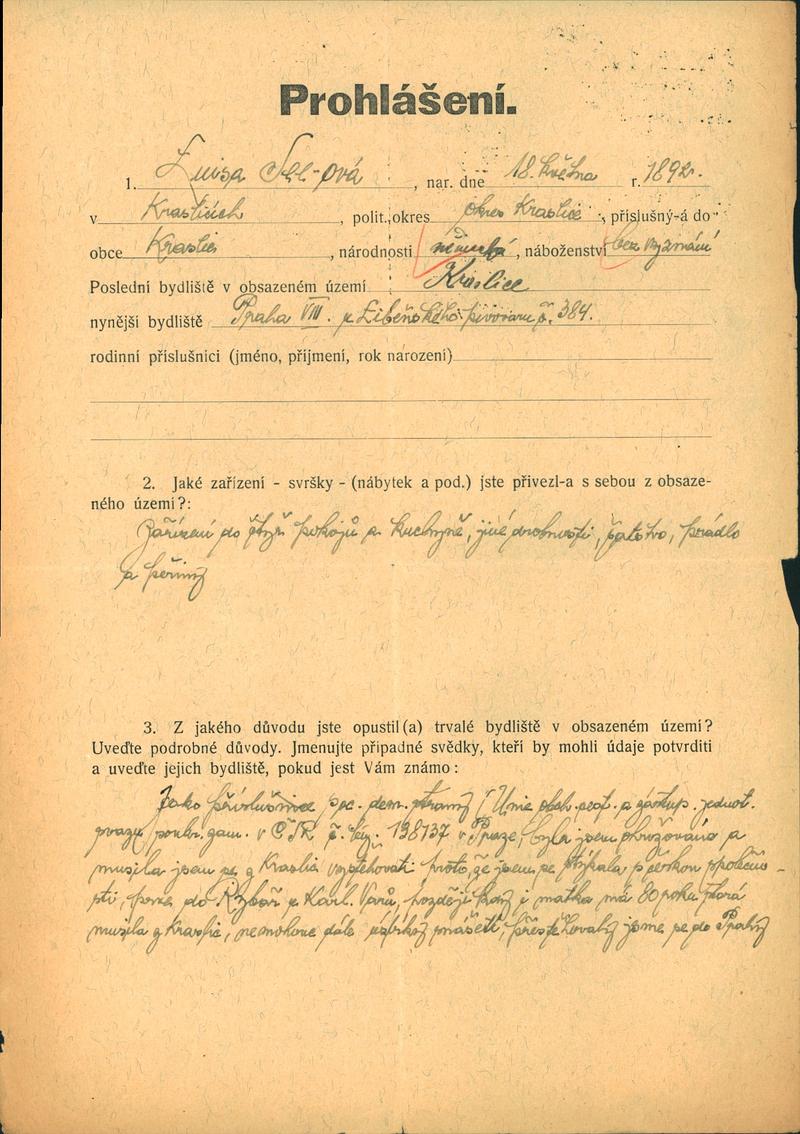 Prohlášení.
1. Luisa , nar. dne 18. května r. 1892.
v Kraslicích, polit. okres okres Kraslice, příslušný-á do
obce Kraslic, národnosti německá, náboženství bez vyznání
Poslední bydliště v obsazeném území Kraslice
nynější bydliště Praha VIII. u Libeňského pivovaru č. 384.
rodinní příslušníci (jméno, příjmení, rok narození)
2. Jaké zařízení - svršky - (nábytek a pod.) jste přivezl-a s sebou z obsaze-
ného území?:
Zařízení do čtyř pokojů a kuchyně, jiné drobnosti, šatstvo, prádlo
a peřiny
3. Z jakého důvodu jste opustil(a) trvalé bydliště v obsazeném území?
Uveďte podrobné důvody. Jmenujte případné svědky, kteří by mohli údaje potvrditi
a uveďte jejich bydliště, pokud jest Vám známo:
Jako příslušnice soc. dem. strany (Unie obch. a zástup. jednot.
svazu soukr. zam. v ČSR č. leg. 198737 v Praze, byla jsem ohrožována a
musila jsem se z Kraslic vystěhovati proto, že jsem se stýkala s českou společno-
stí, prve do Rybář u Karl. Varů, později i matka má 80 roků stará
musila z Kraslic, nemohouc dále útisky snášeti, přestěhovaly jsme se do Prahy